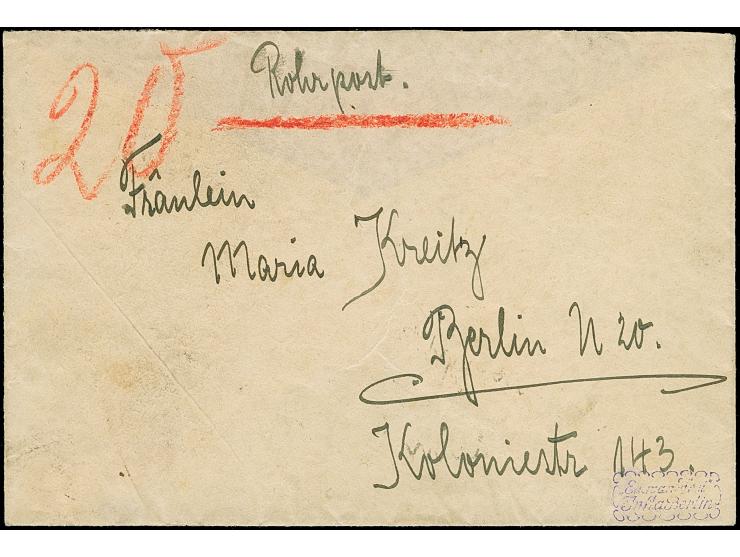 20
Rohrpost.
Fräulein
Maria Kreitz
Berlin N 20.
Koloniestr 143.
Berlin